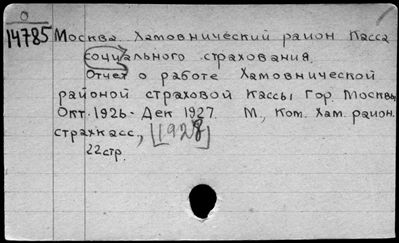 0
14785
Москва. Хамовнический район Касса
социального страхования.
Отчет о работе Хамовнической
районой страховой кассы Гор. Москвы
Окт. 1926 - Дек 1927. М., Ком. Хам. район.
страхкасс, [1928]
22 стр.